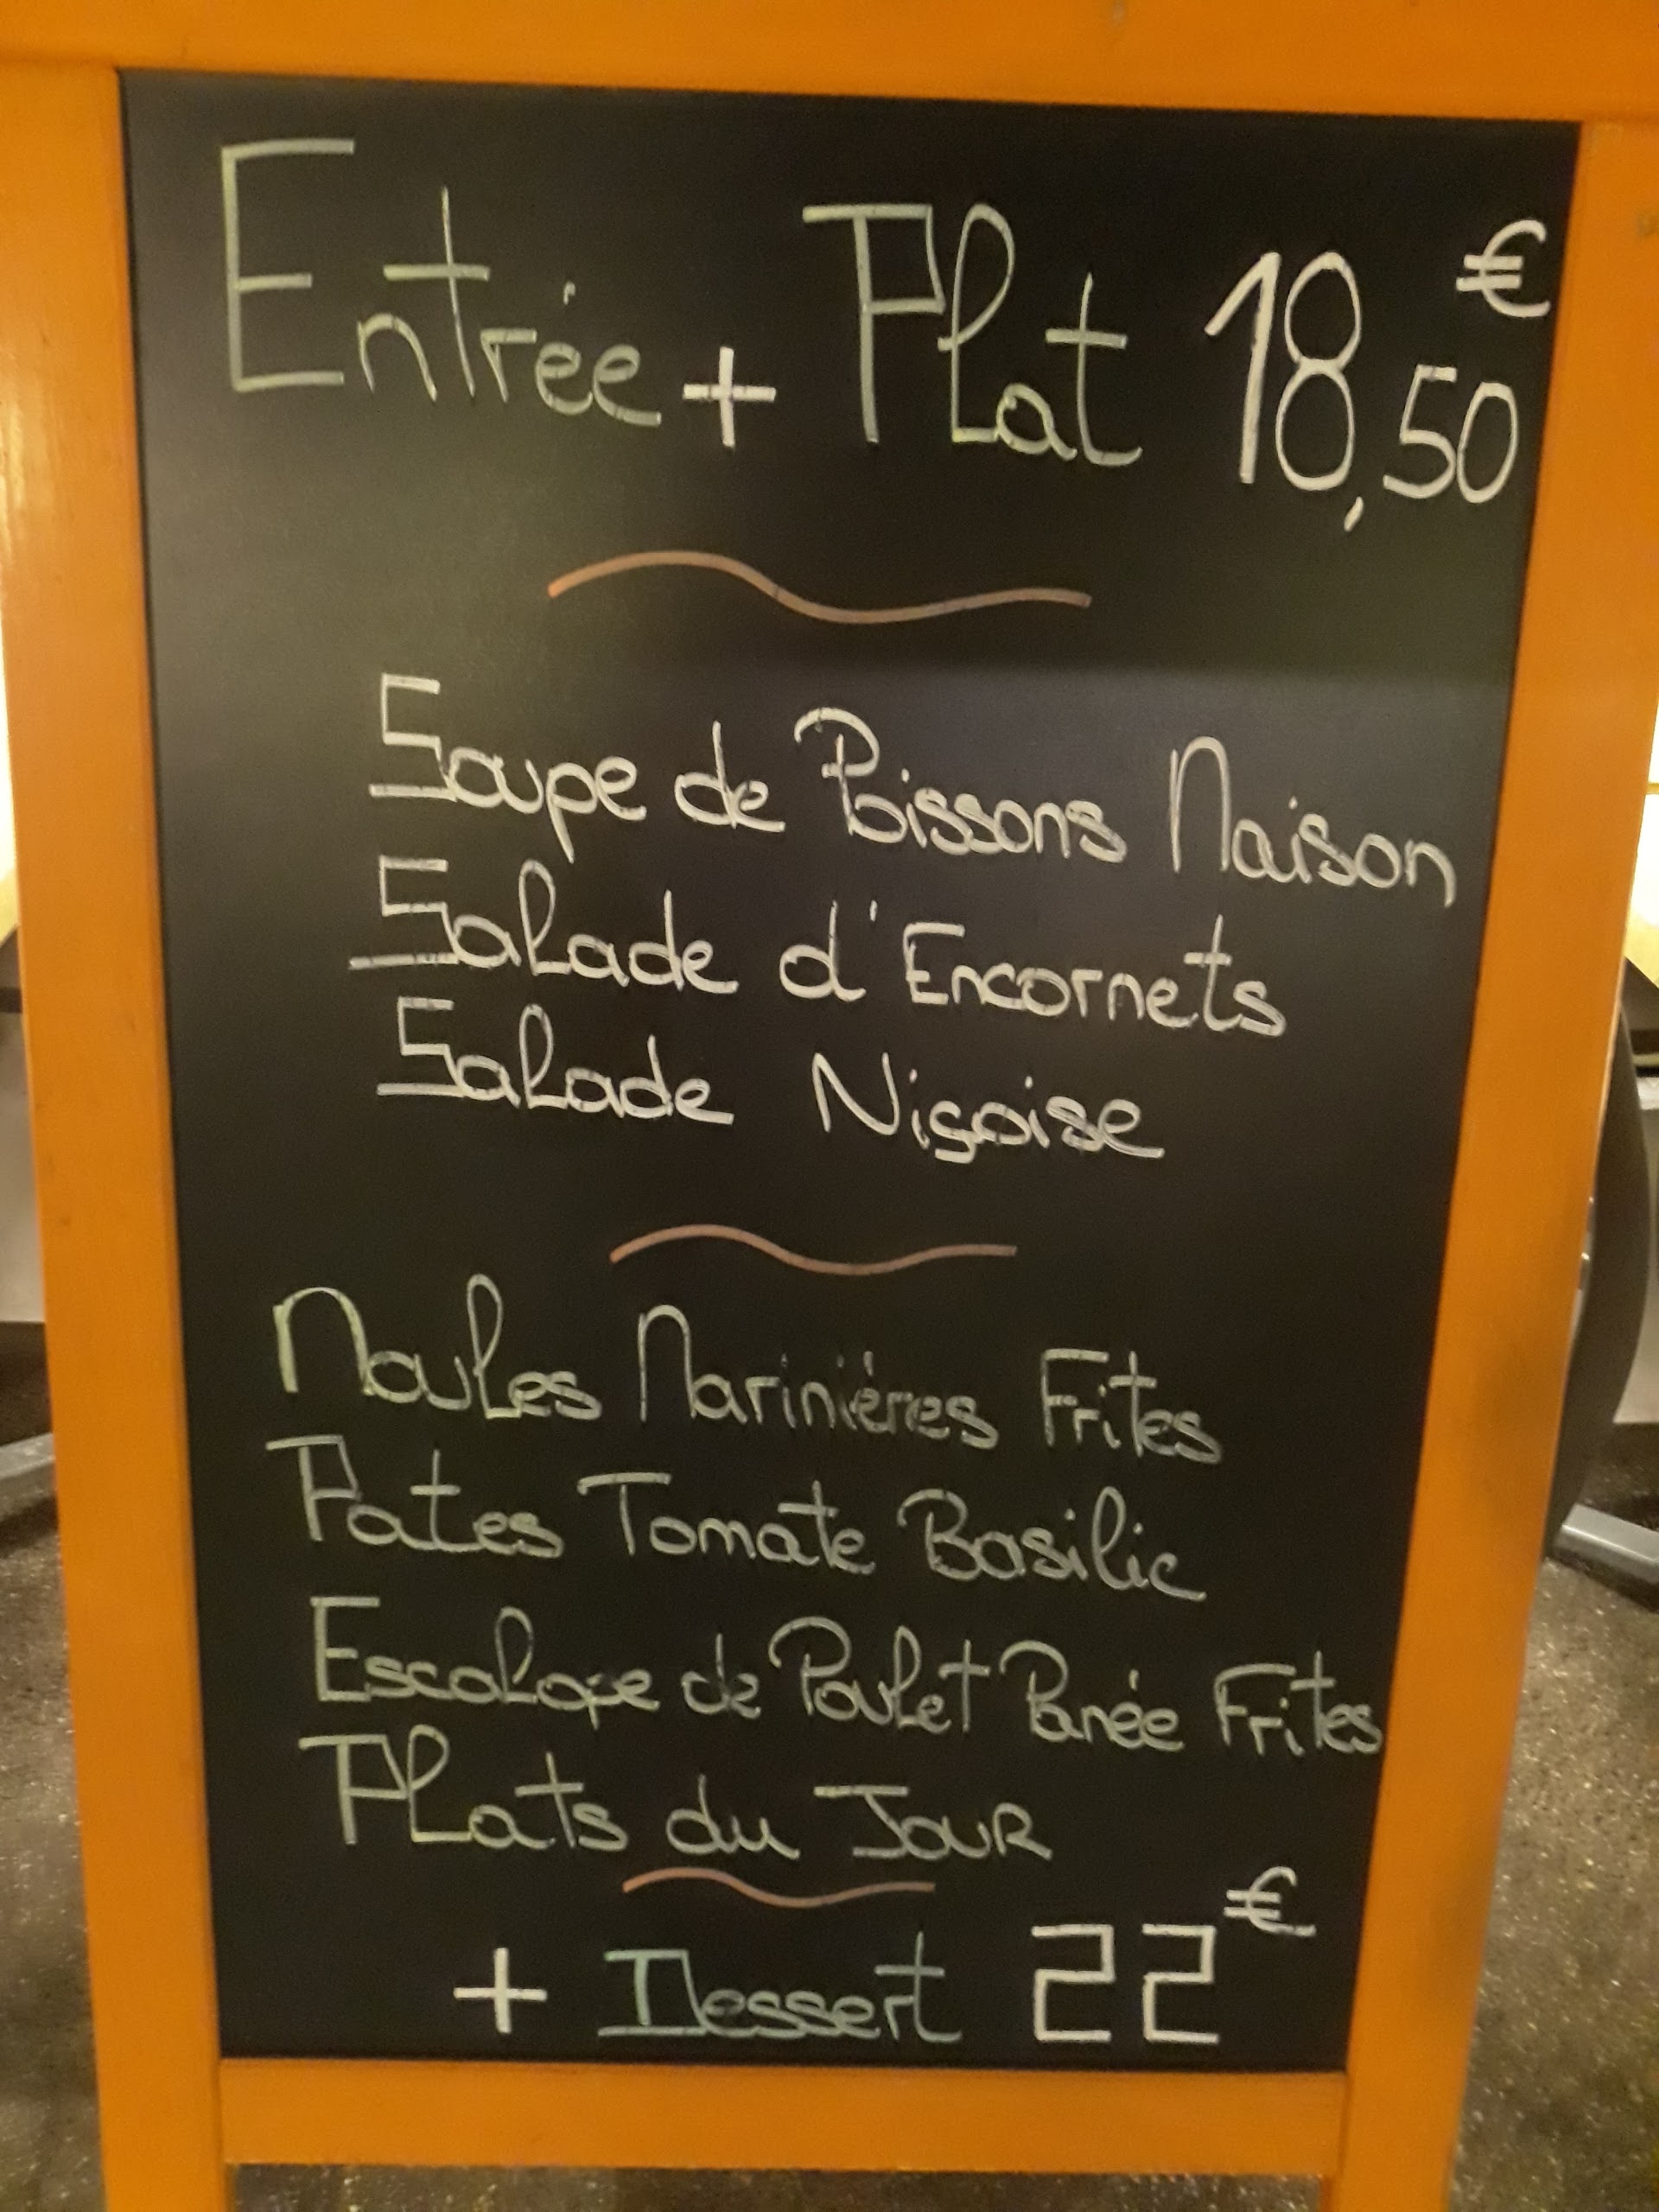 Entrée + Plat 18,50€
Soupe de Poissons Maison
Salade d'Encornets
Salade Niçoise
Moules Marinières Frites
Pates Tomate Basilic
Escalope de Poulet Panée Frites
Plats du Jour
+ Dessert 22€